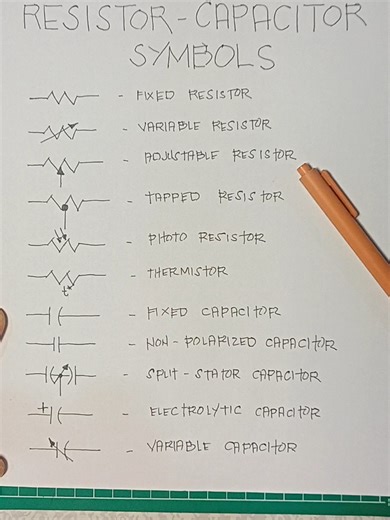 RESISTOR-CAPACITOR
SYMBOLS
- FIXED RESISTOR
- VARIABLE RESISTOR
- ADJUSTABLE RESISTOR
- TAPPED RESISTOR
- PHOTO RESISTOR
t - THERMISTOR
- FIXED CAPACITOR
- NON-POLARIZED CAPACITOR
- SPLIT-STATOR CAPACITOR
+ - ELECTROLYTIC CAPACITOR
- VARIABLE CAPACITOR